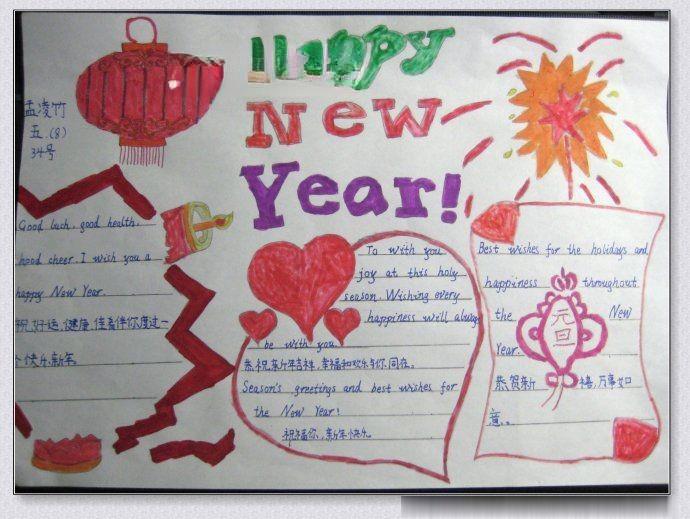 Happy
New
Year!
孟凌竹
五.(8)
34号
Good luch, good health,
hood cheer. I wish you a
happy New Year.
祝好运、健康、佳肴伴你度过一
个快乐新年.
To with you
joy at this holy
season. Wishing every
happiness will always
be with you.
恭祝新年吉祥,幸福和欢乐与你同在。
Season's greetings and best wishes for
the New Year!
祝福你,新年快乐
Best wishes for the holidays and
happiness throughout
the New
Year.
元旦
恭贺新禧,万事如
意。